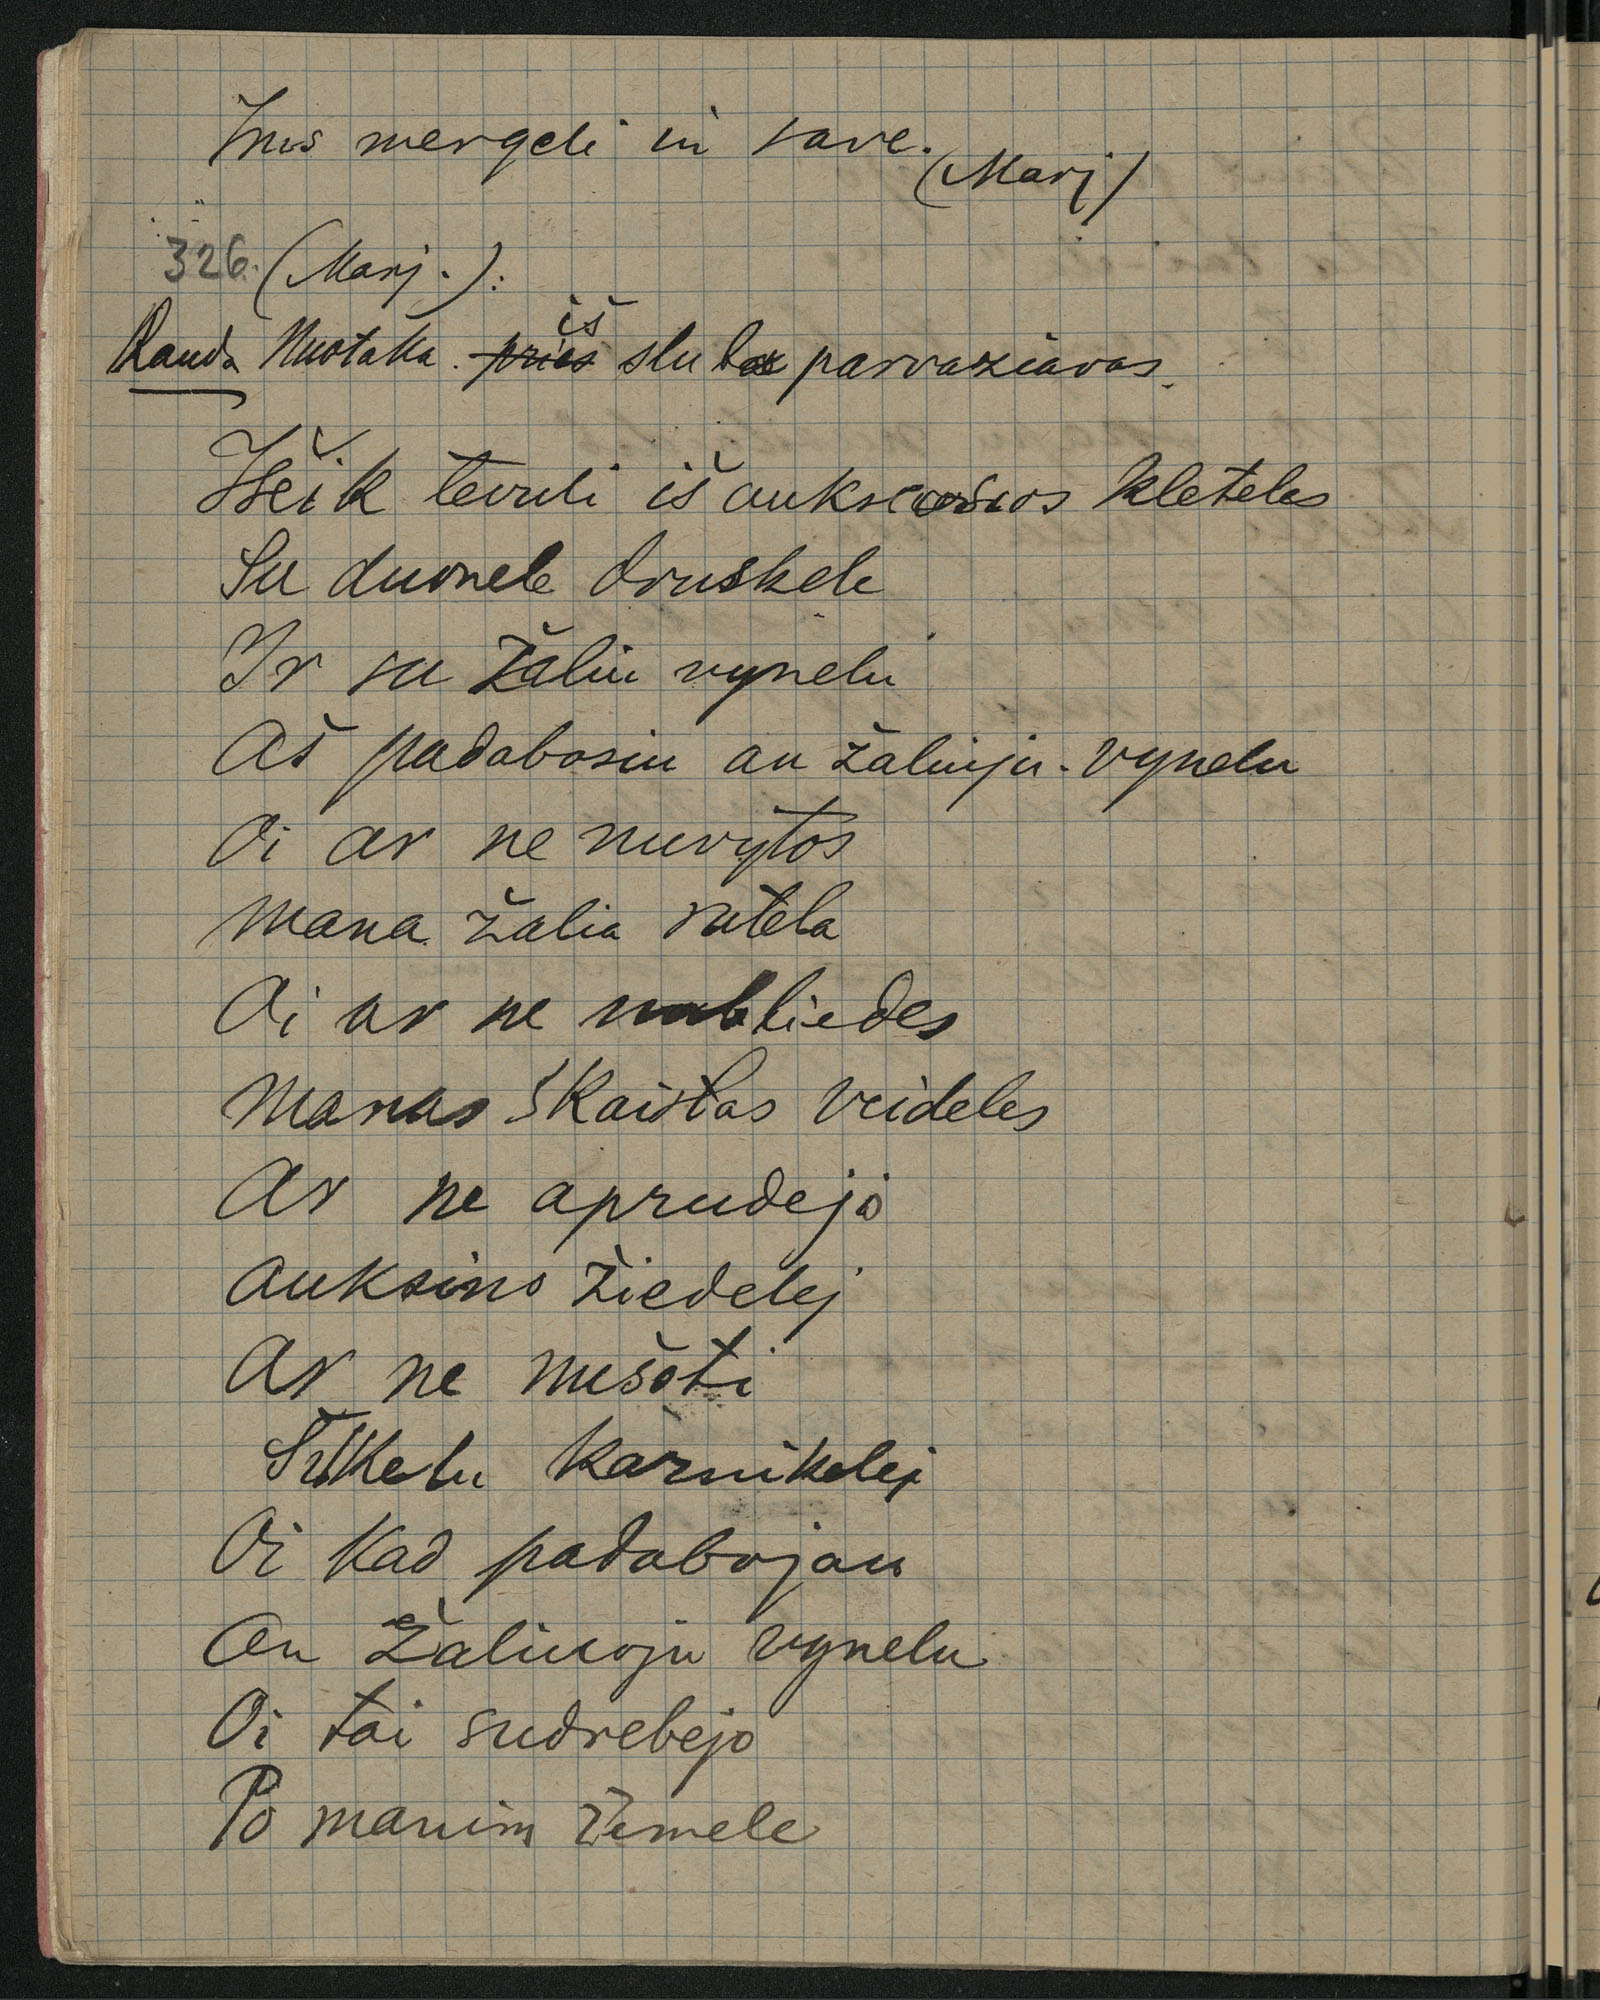 Ims mergeli in save.
(Marj)
326. (Marj.):
Rauda Nuotaka. iš slubo parvaziavas.
Išeik tevuli iš auksc kleteles
Su duonele druskele
Ir su žaliu vynelu
Aš padabosiu an žaliuju vynelu
Oi ar ne nuvytos
Mana žalia rutela
Oi ar ne nubliedes
Manas skaistas veideles
Ar ne aprudejo
Auksino žiedelej
Ar ne nušoti
Šilkelu kaznikelej
Oi kad padabojau
An žaliuoju vynelu
Oi tai sudrebejo
Po manim žemele